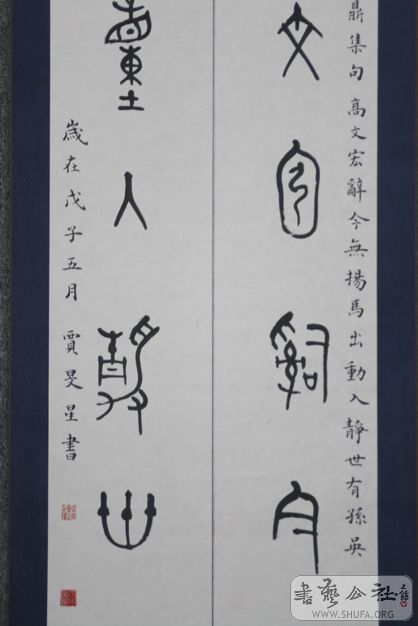 鼎集句高文宏辭今無揚馬出動入靜世有孫吳
文宏辭今
動入靜世
歲在戊子五月賈旻星書
書藝公社
WWW.SHUFA.ORG